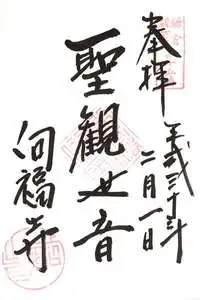 奉拝
平成三十年
二月一日
聖観世音
向福寺